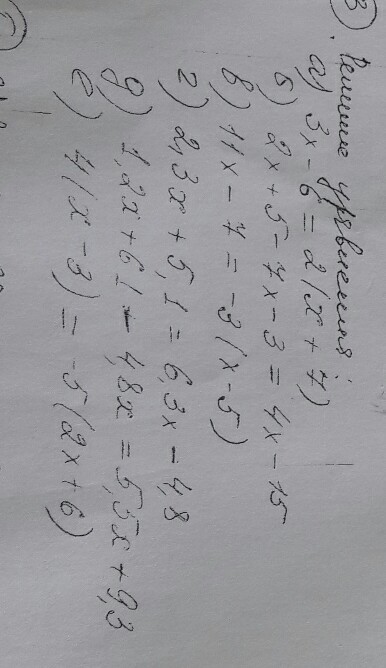 3) Решите уравнения:
а) 3x - 6 = 2(x + 7)
б) 2x + 5 - 7x - 3 = 4x - 15
в) 11x - 7 = -3(x - 5)
г) 2,3x + 5,1 = 6,3x - 4,8
д) 1,2x + 6,1 - 4,8x = 5,3x + 9,3
е) 4(x - 3) = -5(2x + 6)